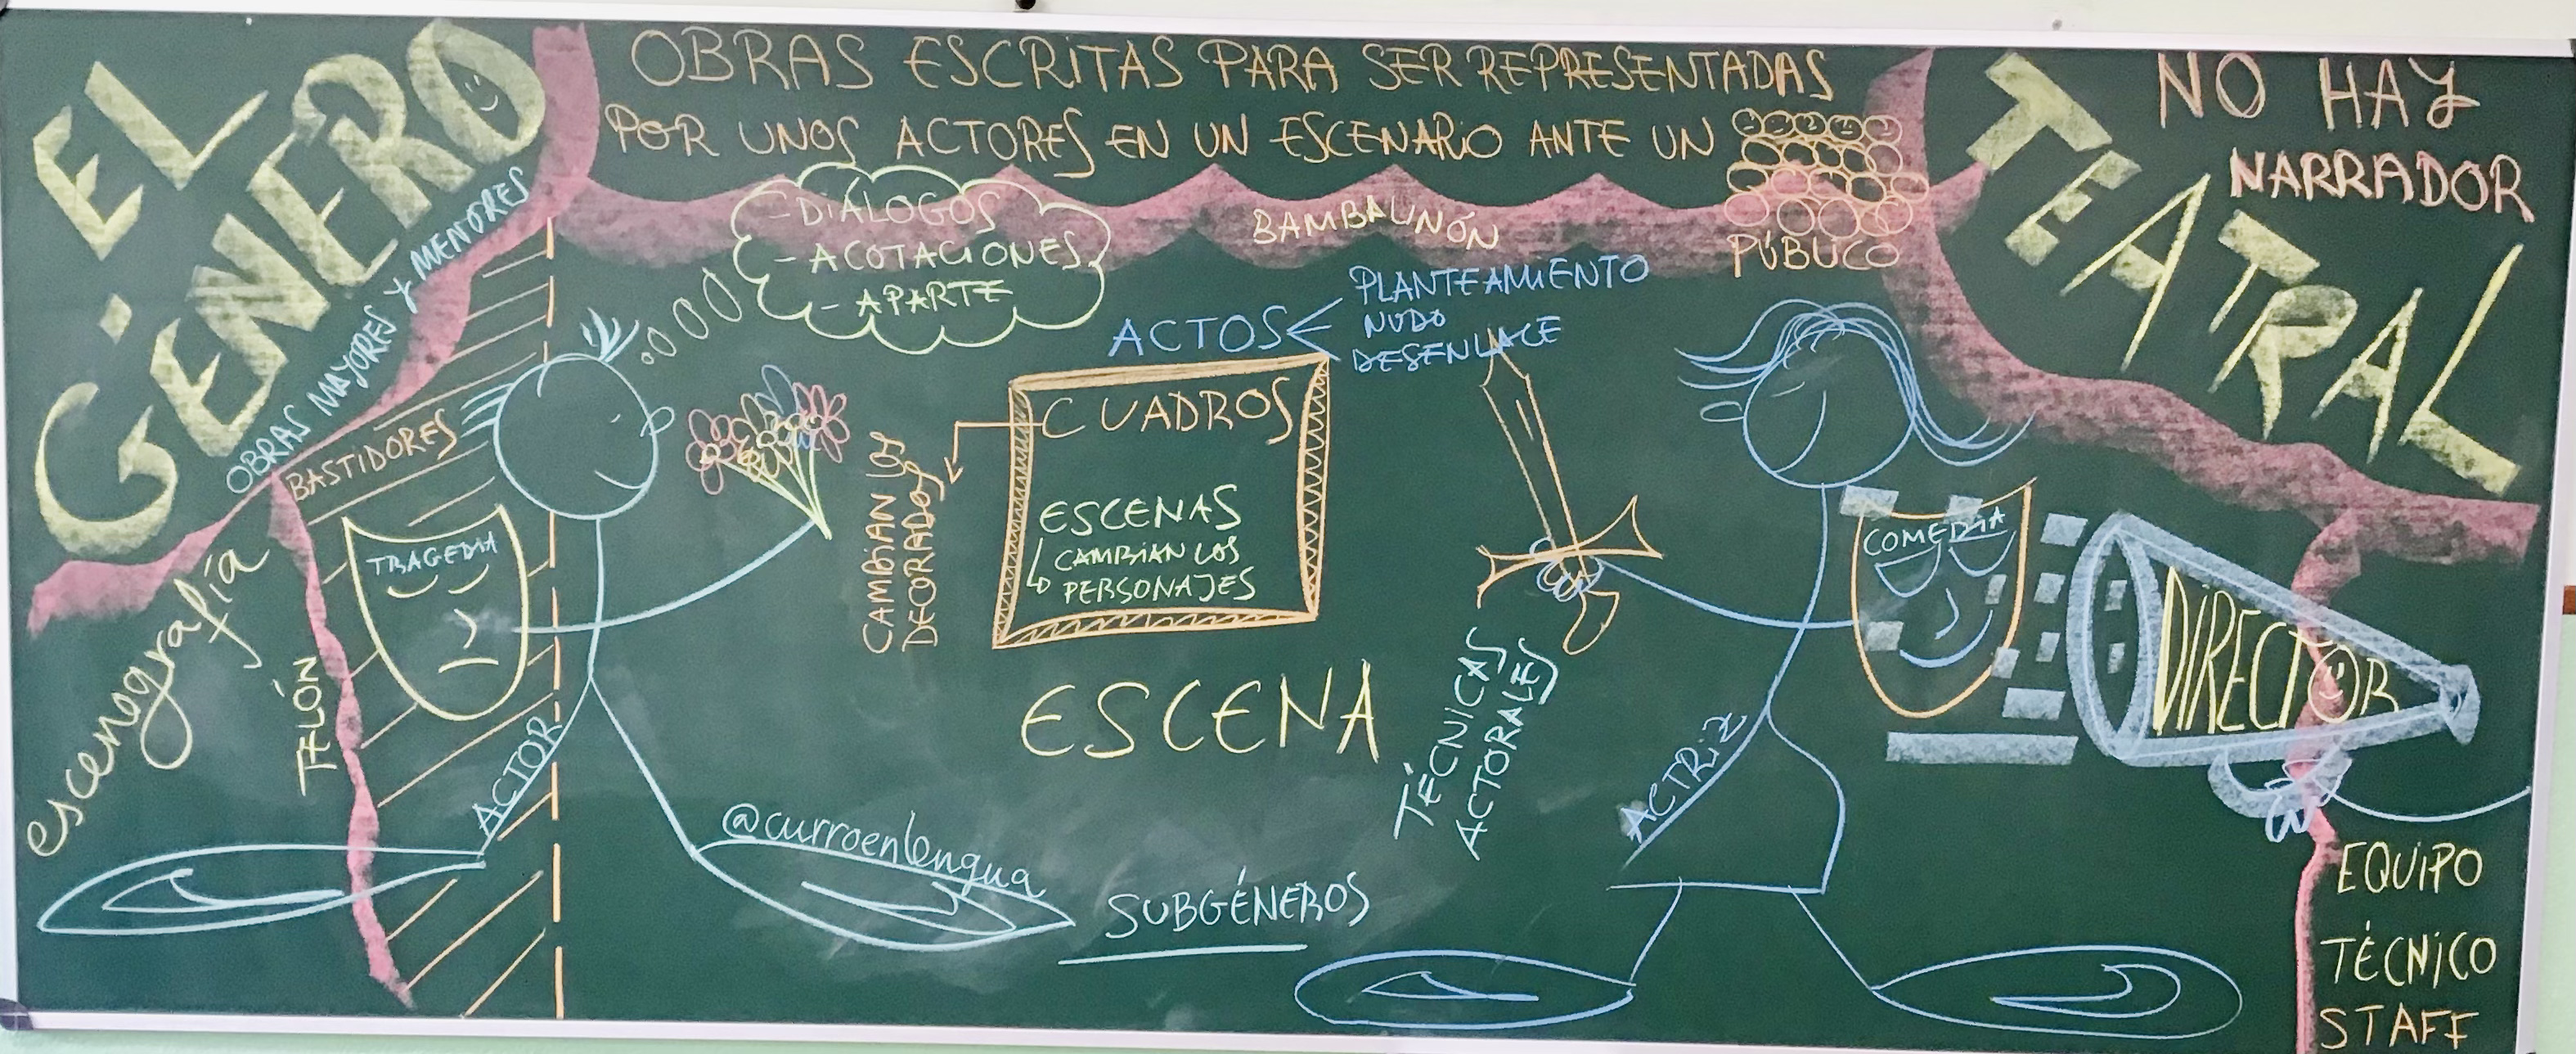 EL
GÉNERO
OBRAS MAYORES Y MENORES
OBRAS ESCRITAS PARA SER REPRESENTADAS
POR UNOS ACTORES EN UN ESCENARIO ANTE UN
PÚBLICO
TEATRAL
NO HAY
NARRADOR
BAMBALINÓN
- DIÁLOGOS
- ACOTACIONES
- APARTE
ACTOS
PLANTEAMIENTO
NUDO
DESENLACE
BASTIDORES
CUADROS
CAMBIAN LOS
DECORADOS
ESCENAS
CAMBIAN LOS
PERSONAJES
TRAGEDIA
COMEDIA
escenografía
TELÓN
ACTOR
ESCENA
TÉCNICAS
ACTORALES
ACTRIZ
DIRECTOR
@curroenlengua
SUBGÉNEROS
EQUIPO
TÉCNICO
STAFF